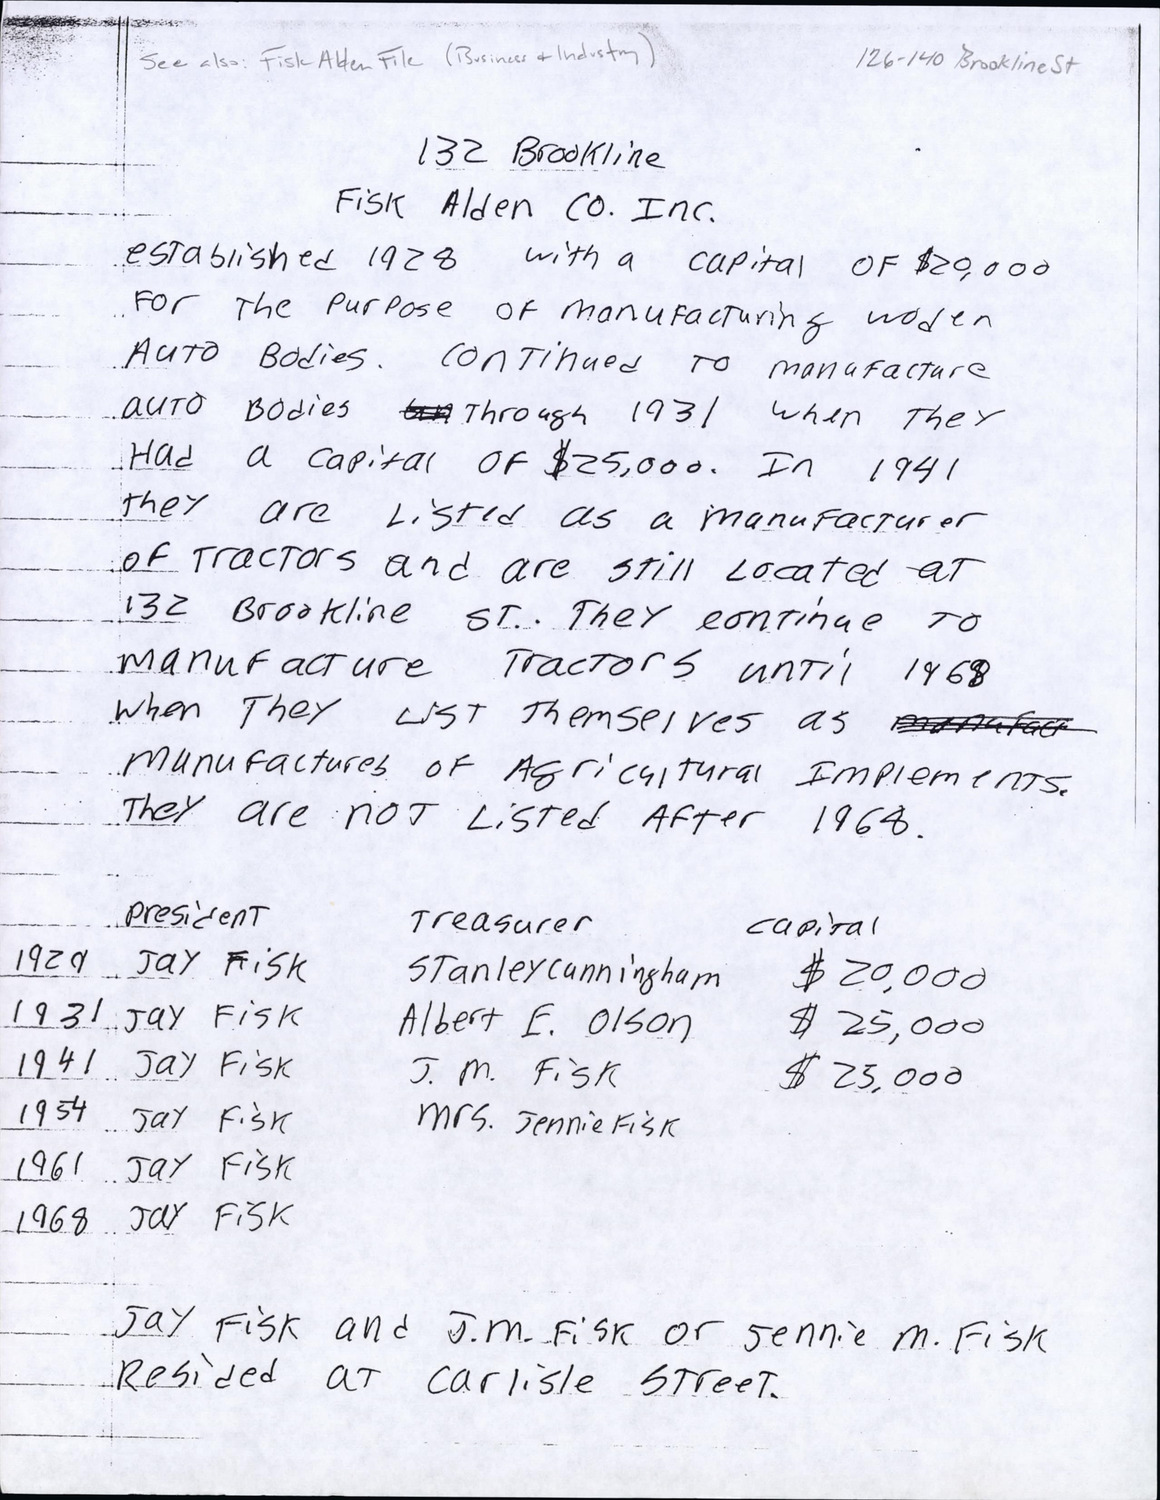 See also: Fisk Alden File (Business + Industry)
126-140 Brookline St
132 Brookline
Fisk Alden Co. Inc.
established 1928 with a capital of $20,000
for the purpose of manufacturing woden
Auto Bodies. Continued to manufacture
auto Bodies through 1931 when they
Had a capital of $25,000. In 1941
they are Listed as a manufacturer
of Tractors and are still Located at
132 Brookline St.. They continue to
manufacture Tractors until 1968
when They List themselves as manufact
manufactures of Agricultural Implements.
They are not Listed After 1968.
President Treasurer Capital
1929 Jay Fisk Stanley Cunningham $ 20,000
1931 Jay Fisk Albert E. Olson $ 25,000
1941 Jay Fisk J. M. Fisk $ 25,000
1954 Jay Fisk Mrs. Jennie Fisk
1961 Jay Fisk
1968 Jay Fisk
Jay Fisk and J.M. Fisk or Jennie M. Fisk
Resided at Carlisle Street.